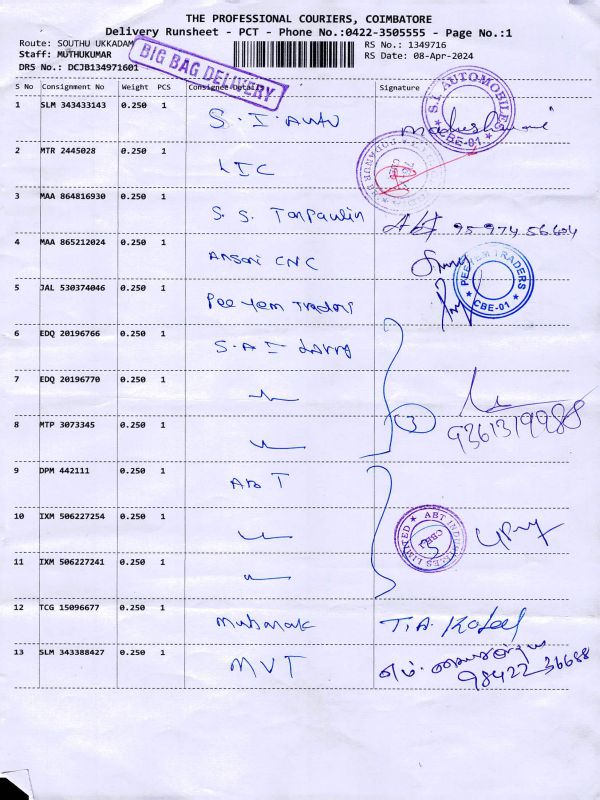 THE PROFESSIONAL COURIERS, COIMBATORE
Delivery Runsheet - PCT - Phone No.:0422-3505555 - Page No.:1
Route: SOUTHU UKKADAM RS No.: 1349716
Staff: MUTHUKUMAR RS Date: 08-Apr-2024
DRS No.: DCJB134971601
BIG BAG DELIVERY
S No Consignment No Weight PCS Consignee Details Signature
1 SLM 343433143 0.250 1 S.I. Auto
S.I. AUTOMOBILES
CBE-01.
2 MTR 2445028 0.250 1 LIC
3 MAA 864816930 0.250 1 S.S. Tarpaulin 95974 56604
4 MAA 865212024 0.250 1 Ansari CNC
5 JAL 530374046 0.250 1 Pee Yem Traders
PEE YEM TRADERS
CBE-01
6 EDQ 20196766 0.250 1 S.A.I
7 EDQ 20196770 0.250 1
8 MTP 3073345 0.250 1 3 9361319988
9 DPM 442111 0.250 1 ABT
10 IXM 506227254 0.250 1
ABT INDUSTRIES LIMITED
11 IXM 506227241 0.250 1
12 TCG 15096677 0.250 1 Mubarak T.A.
13 SLM 343388427 0.250 1 MVT எம்.
98422 36688